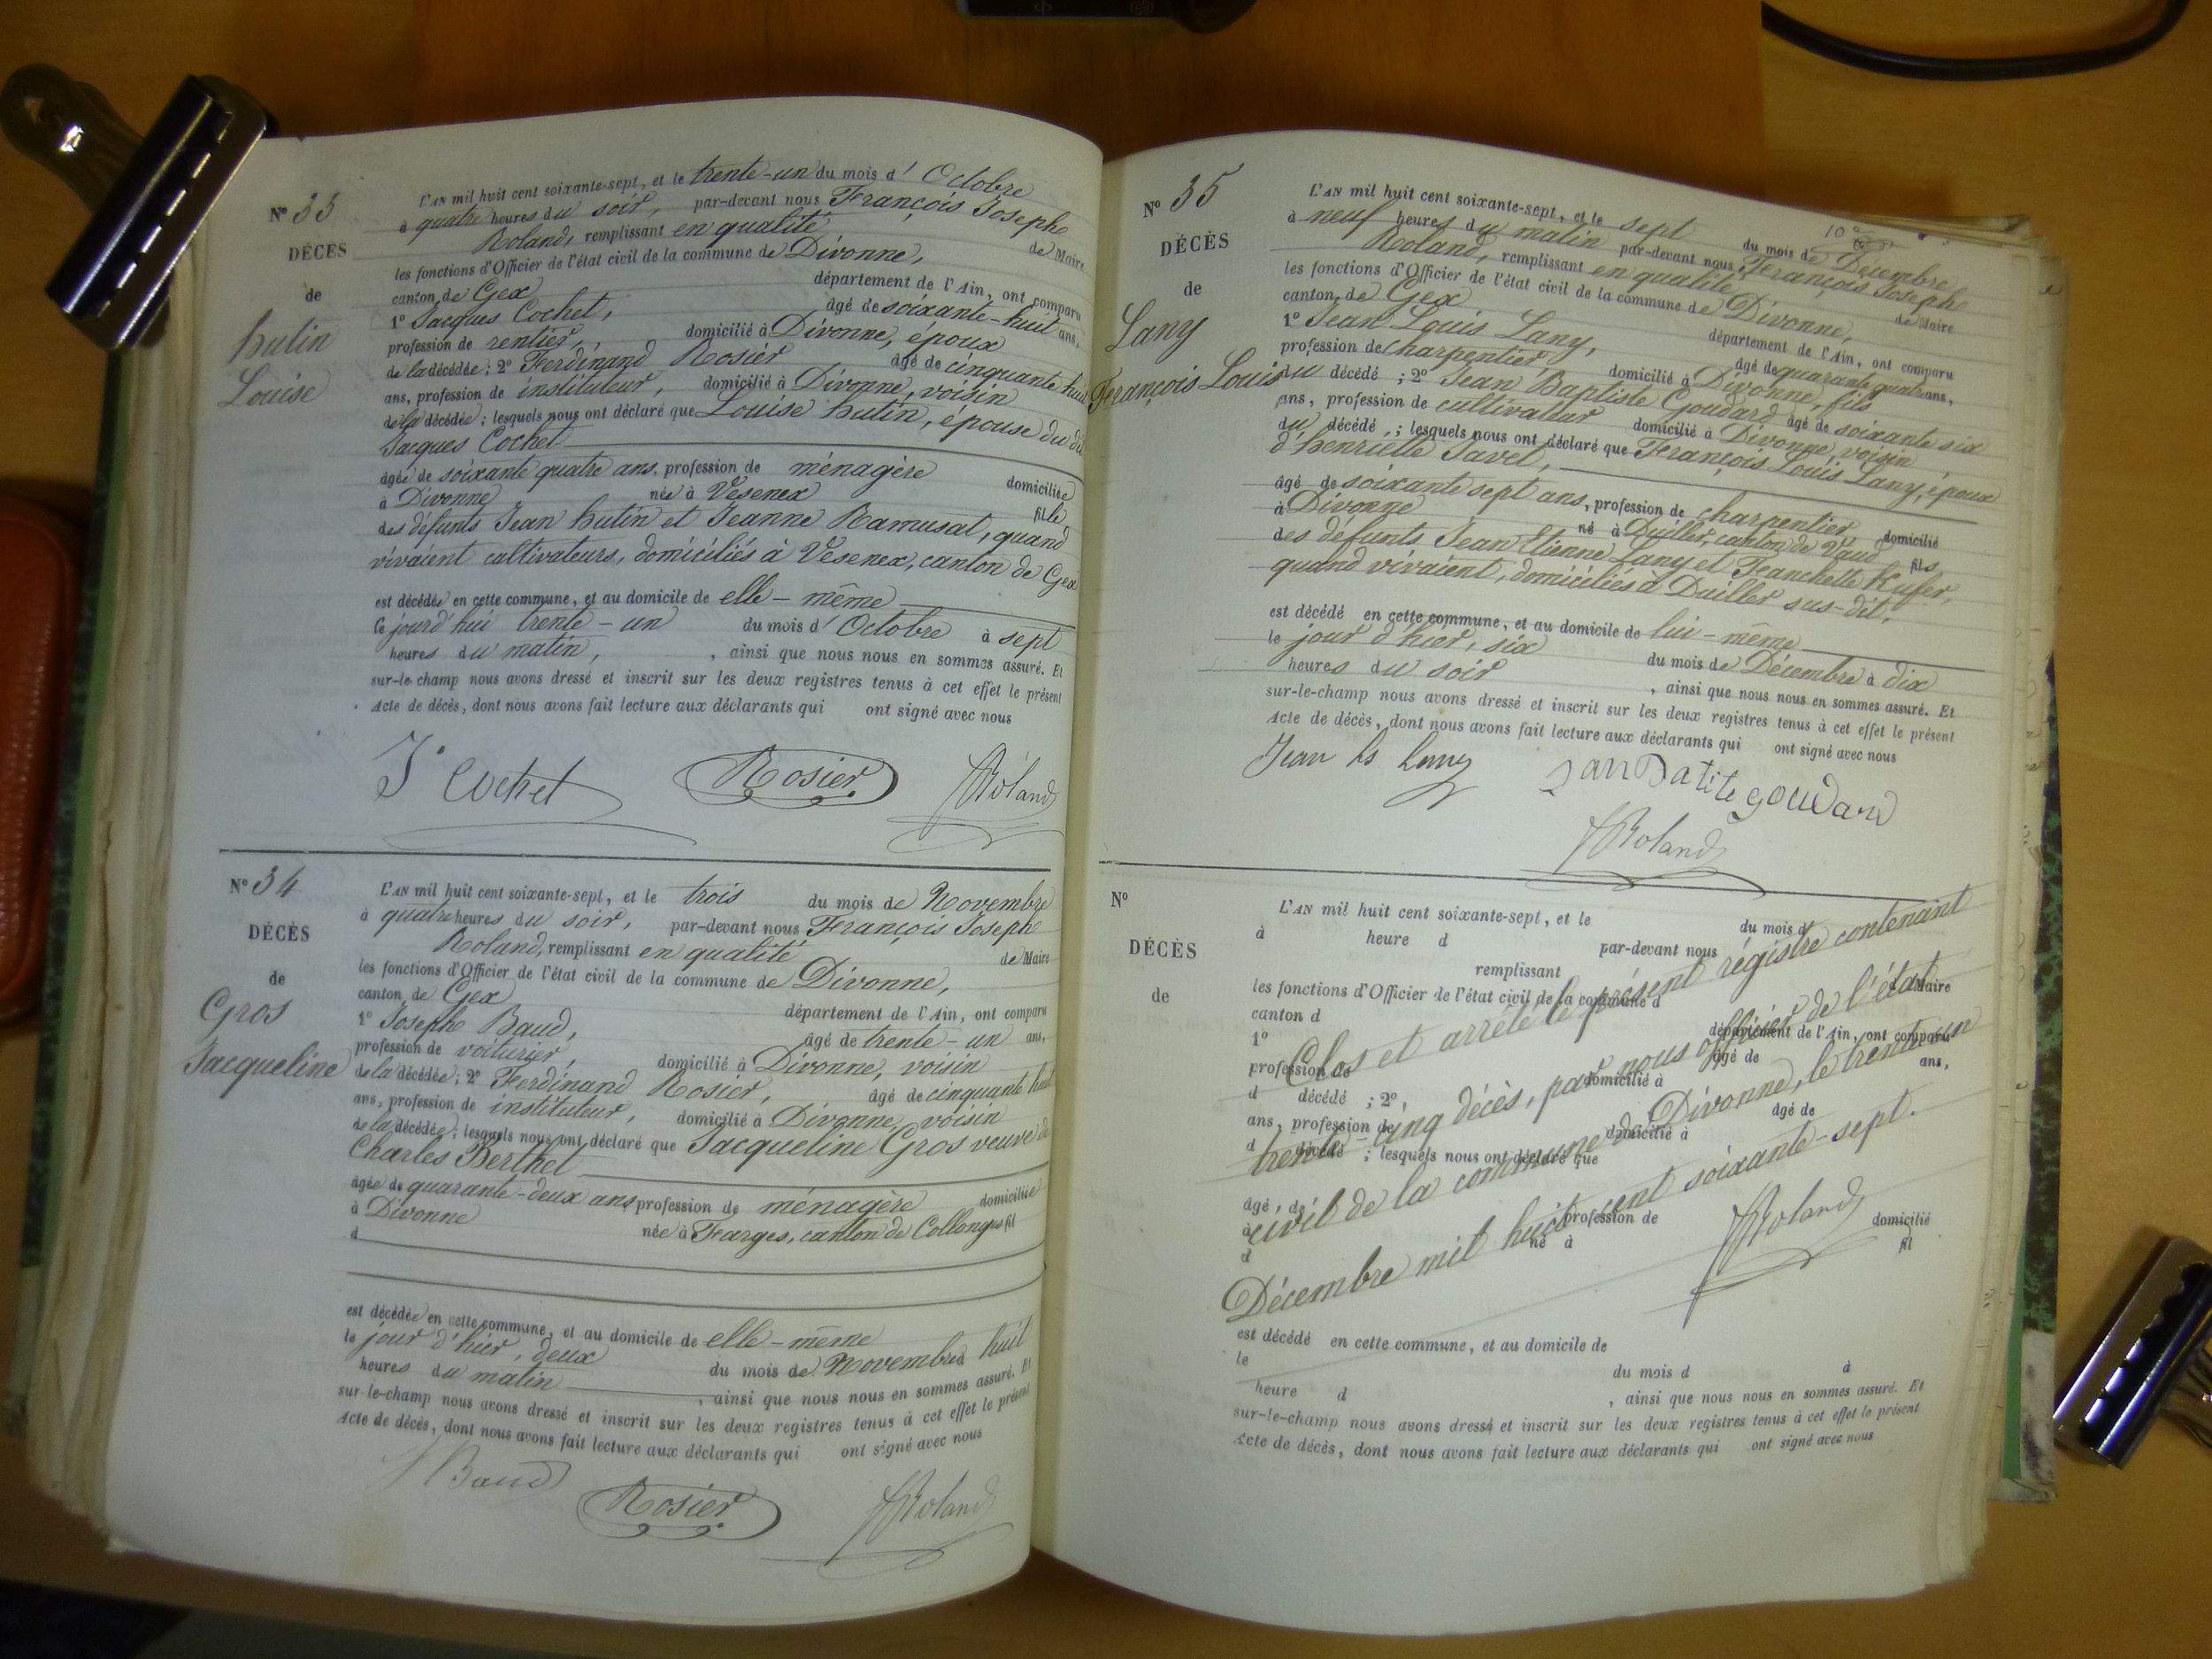 N° 33
DÉCÈS
de
hutin
Louise
L'AN mil huit cent soixante-sept, et le trente-un du mois d' Octobre
à quatre heures du soir, par-devant nous François Joseph
Roland, remplissant en qualité de Maire
les fonctions d'Officier de l'état civil de la commune de Divonne,
canton de Gex département de l'Ain, ont comparu
1° Jacques Cochet, âgé de soixante-huit ans,
profession de rentier, domicilié à Divonne, époux
de la décédée ; 2° Ferdinand Rosier âgé de cinquante huit
ans, profession de instituteur, domicilié à Divonne, voisin
de la décédée ; lesquels nous ont déclaré que Louise hutin, épouse du dit
Jacques Cochet
âgée de soixante quatre ans, profession de ménagère domiciliée
à Divonne née à Vésenex fille
des défunts Jean hutin et Jeanne Ramusat, quand
vivaient cultivateurs, domiciliés à Vésenex, canton de Gex
est décédée en cette commune, et au domicile de elle-même
le jourd'hui trente-un du mois d' Octobre à sept
heures du matin, , ainsi que nous nous en sommes assuré. Et
sur-le-champ nous avons dressé et inscrit sur les deux registres tenus à cet effet le présent
Acte de décès, dont nous avons fait lecture aux déclarants qui ont signé avec nous
Js Cochet Rosier Roland
N° 34
DÉCÈS
de
Gros
Jacqueline
L'AN mil huit cent soixante-sept, et le trois du mois de Novembre
à quatre heures du soir, par-devant nous François Joseph
Roland, remplissant en qualité de Maire
les fonctions d'Officier de l'état civil de la commune de Divonne,
canton de Gex département de l'Ain, ont comparu
1° Joseph Baud, âgé de trente-un ans,
profession de voiturier, domicilié à Divonne, voisin
de la décédée ; 2° Ferdinand Rosier, âgé de cinquante huit
ans, profession de instituteur, domicilié à Divonne, voisin
de la décédée ; lesquels nous ont déclaré que Jacqueline Gros veuve de
Charles Berthet
âgée de quarante-deux ans profession de ménagère domiciliée
à Divonne née à Farges, canton de Collonges fil
d
est décédée en cette commune, et au domicile de elle-même
le jour d'hier, deux du mois de Novembre à huit
heures du matin , ainsi que nous nous en sommes assuré. Et
sur-le-champ nous avons dressé et inscrit sur les deux registres tenus à cet effet le présent
Acte de décès, dont nous avons fait lecture aux déclarants qui ont signé avec nous
J Baud Rosier Roland
N° 35
DÉCÈS
de
Lany
François Louis
L'AN mil huit cent soixante-sept, et le sept du mois de Décembre
à neuf heures du matin par-devant nous François Joseph
Roland, remplissant en qualité de Maire
les fonctions d'Officier de l'état civil de la commune de Divonne,
canton de Gex département de l'Ain, ont comparu
1° Jean Louis Lany, âgé de quarante quatre ans,
profession de charpentier, domicilié à Divonne, fils
du décédé ; 2° Jean Baptiste Goudard âgé de soixante six
ans, profession de cultivateur domicilié à Divonne, voisin
du décédé ; lesquels nous ont déclaré que François Louis Lany, époux
d'henriette Javet,
âgé de soixante sept ans, profession de charpentier domicilié
à Divonne né à Duiller, canton de Vaud fils
des défunts Jean Etienne Lany et Jeanchette Kufer,
quand vivaient, domiciliés à Duiller sus-dit,
est décédé en cette commune, et au domicile de lui-même
le jour d'hier, six du mois de Décembre à dix
heures du soir , ainsi que nous nous en sommes assuré. Et
sur-le-champ nous avons dressé et inscrit sur les deux registres tenus à cet effet le présent
Acte de décès, dont nous avons fait lecture aux déclarants qui ont signé avec nous
Jean Ls Lany Jan Batite goudard
Roland
N°
DÉCÈS
de
L'AN mil huit cent soixante-sept, et le du mois d
à heure d par-devant nous
remplissant Maire
les fonctions d'Officier de l'état civil de la commune d
canton d département de l'Ain, ont comparu
1° âgé de ans,
profession de domicilié à
d décédé ; 2°, âgé de
ans, profession de domicilié à
d décédé ; lesquels nous ont déclaré que
âgé de profession de domicilié
à né à fil
d
Clos et arrêté le présent régistre contenant
trente-cinq décès, par nous officier de l'état
civil de la commune de Divonne, le trente-un
Décembre mil huit cent soixante-sept.
Roland
est décédé en cette commune, et au domicile de
le du mois d à
heure d , ainsi que nous nous en sommes assuré. Et
sur-le-champ nous avons dressé et inscrit sur les deux registres tenus à cet effet le présent
Acte de décès, dont nous avons fait lecture aux déclarants qui ont signé avec nous